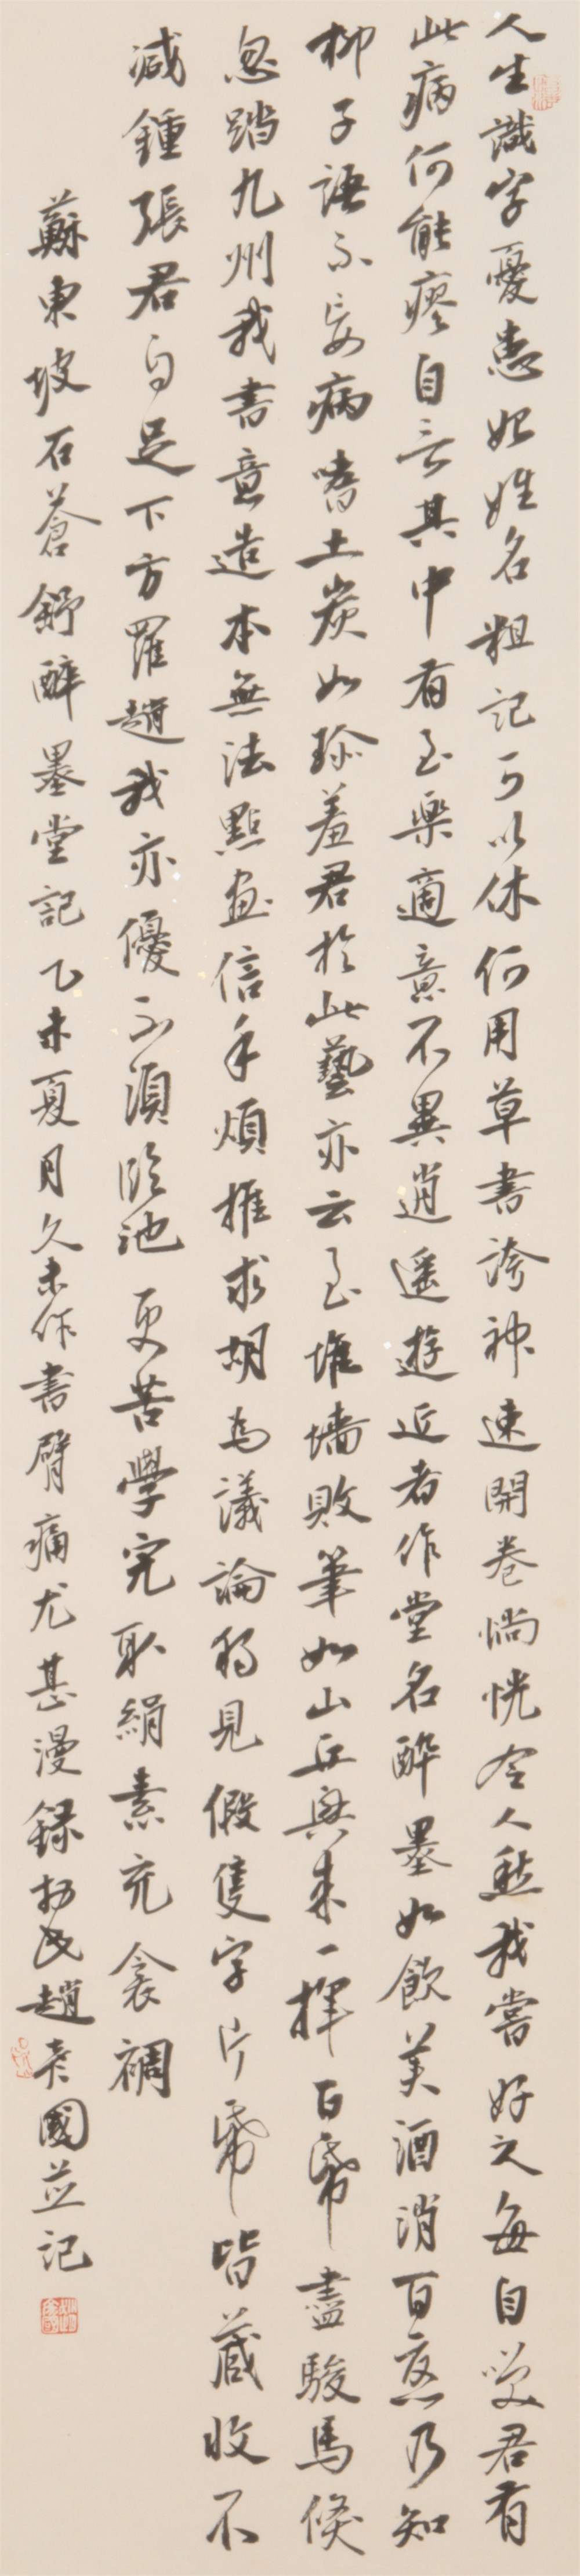 人生識字憂患始姓名粗記可以休何用草書誇神速開卷惝恍令人愁我嘗好之每自笑君有
此病何能瘳自言其中有至樂適意不異逍遥遊近者作堂名醉墨如飲美酒消百憂乃知
柳子語不妄病嗜土炭如珍羞君於此藝亦云至堆墻敗筆如山丘興来一揮百帋盡駿馬倏
忽踏九州我書意造本無法點畫信手煩推求胡為議論獨見假隻字片帋皆藏收不
減鍾張君自足下方羅趙我亦優不須臨池更苦學完取絹素充衾裯
蘇東坡石蒼舒醉墨堂記乙未夏月久未作書臂痛尤甚漫録趙國並記